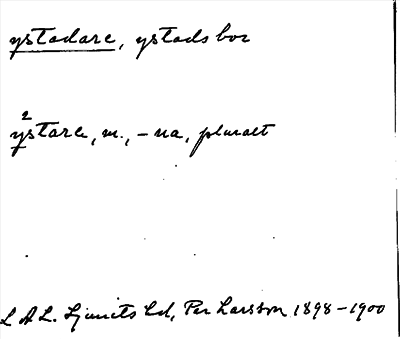 ystadare, ystadsbor
²ystarɛ, m., -na, pluralt
L A L. Ljunits hd, Per Larsson 1898-1900